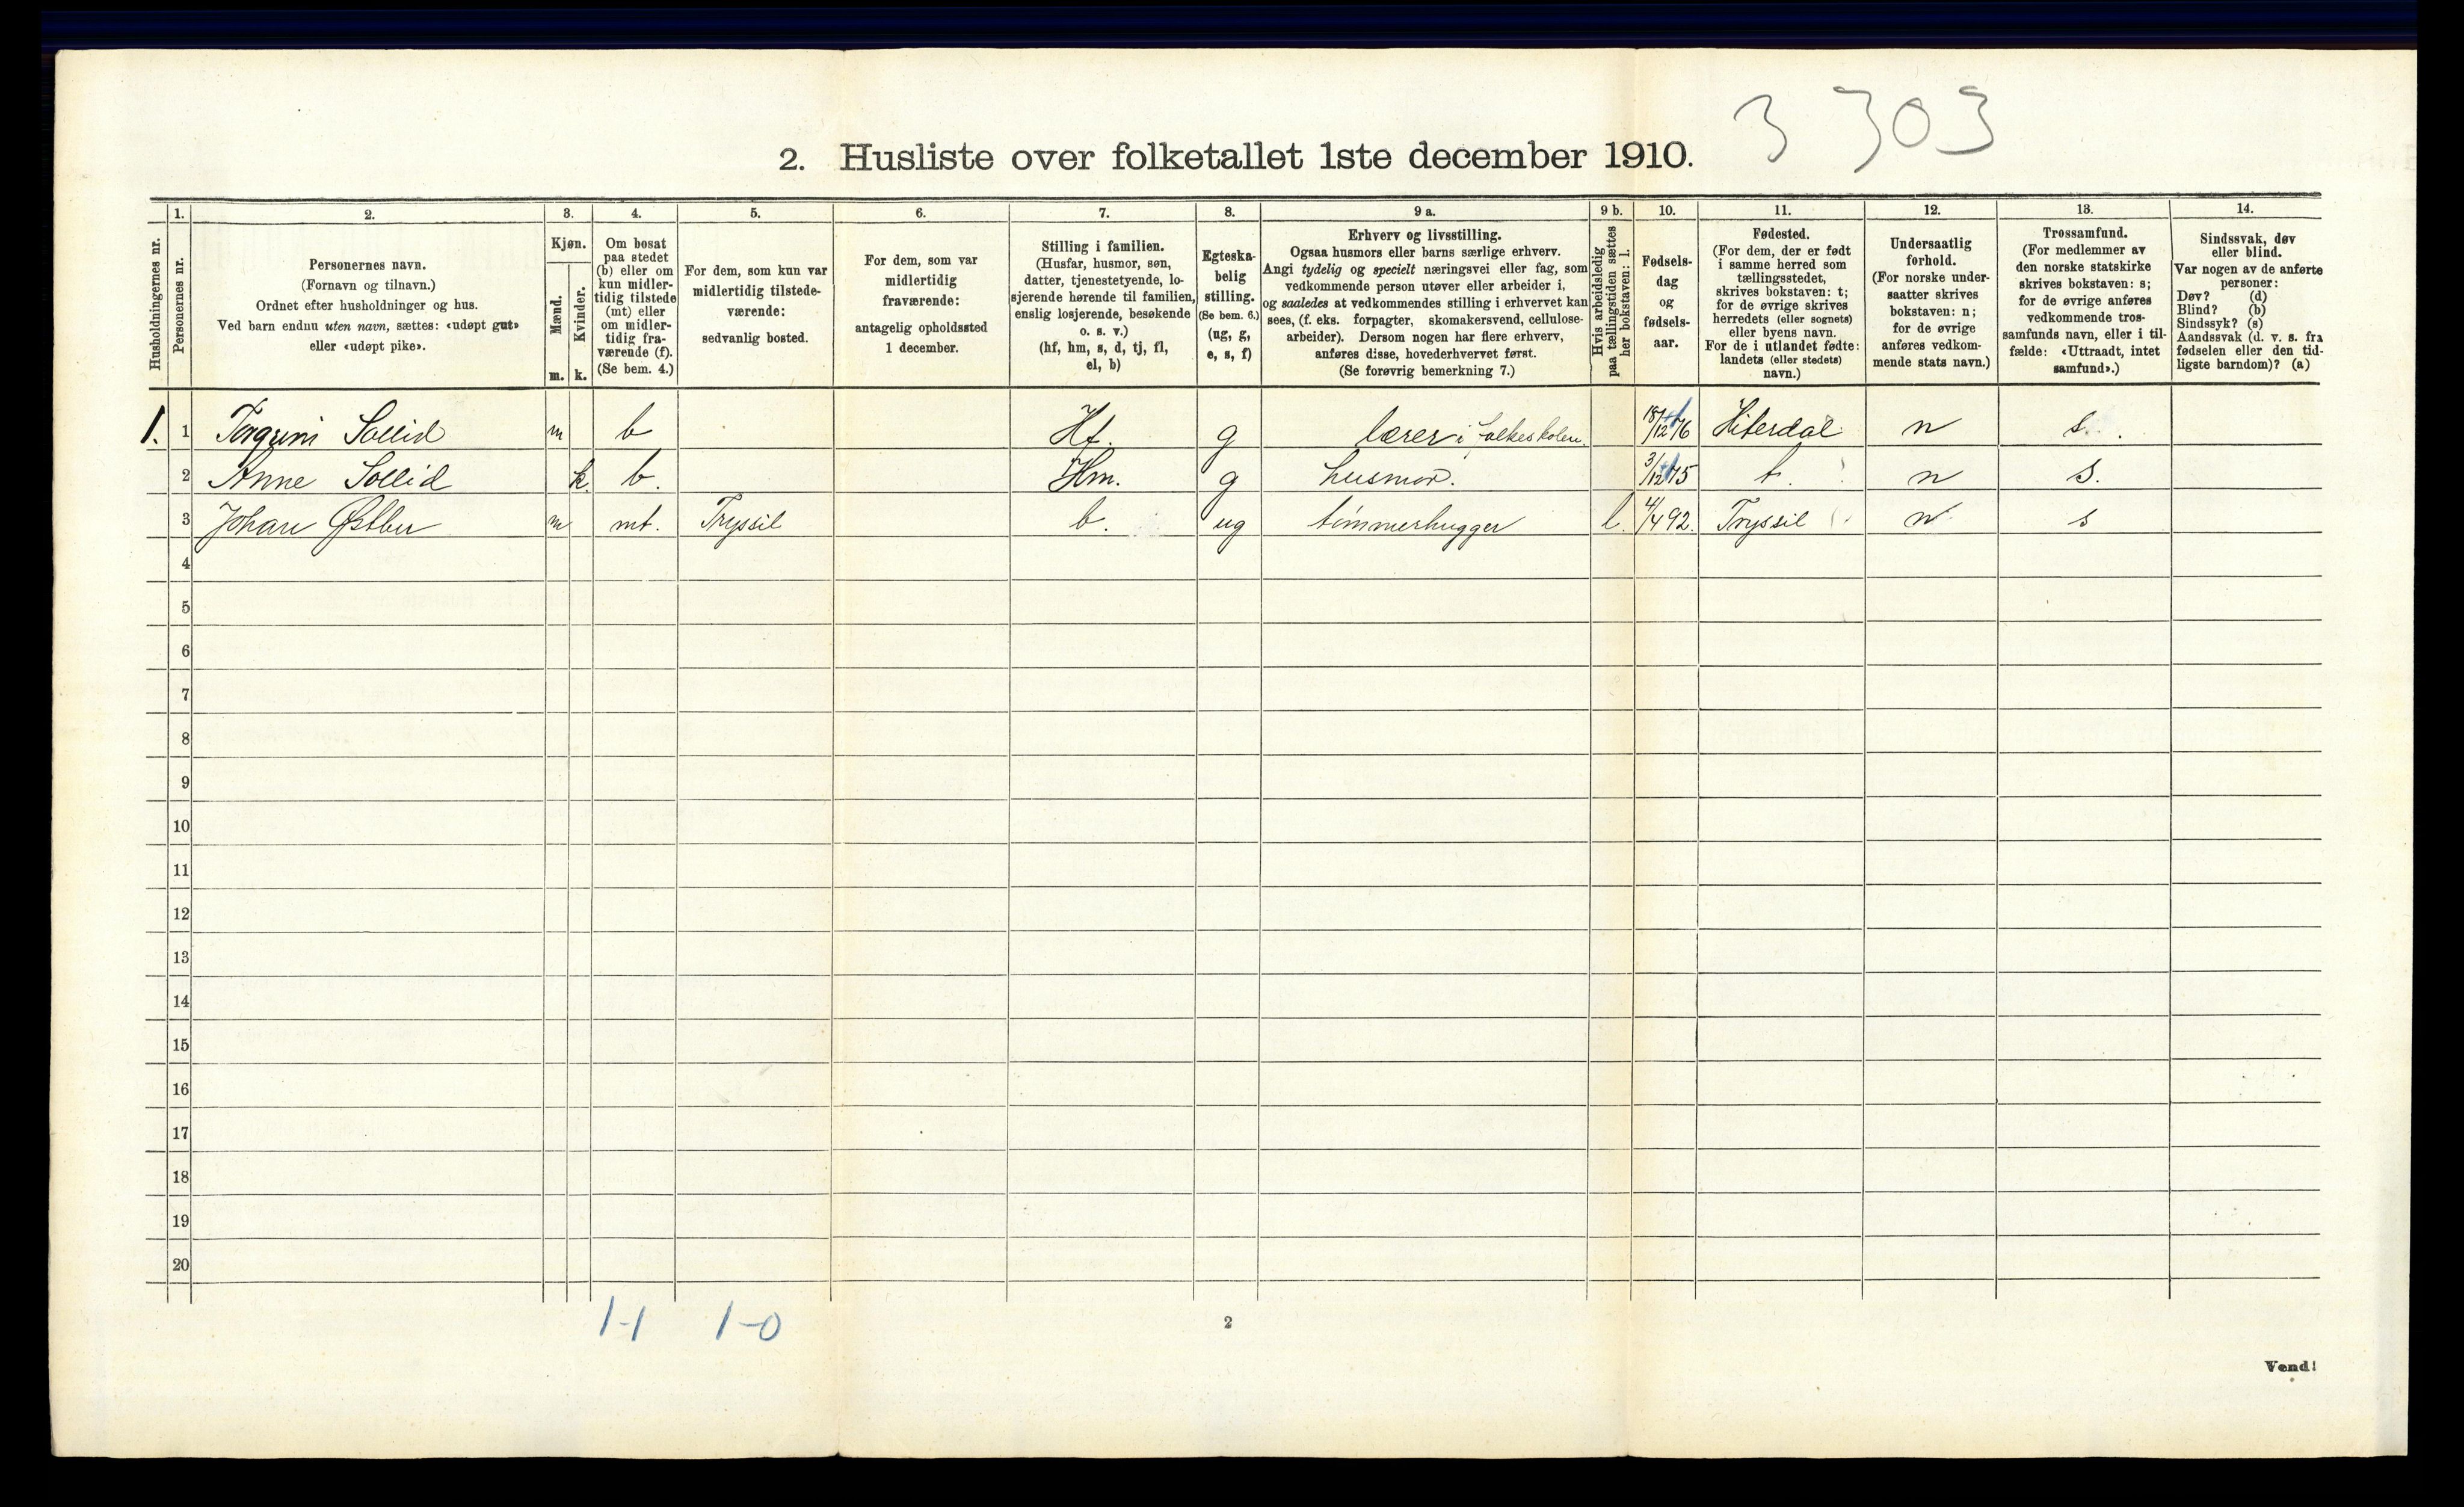 3 303
2. Husliste over folketallet 1ste december 1910.
1. 2. 3. 4. 5. 6. 7. 8. 9 a. 9 b. 10. 11. 12. 13. 14.
Husholdningernes nr.
Personernes nr.
Personernes navn.
(Fornavn og tilnavn.)
Ordnet efter husholdninger og hus.
Ved barn endnu uten navn, sættes: «udøpt gut»
eller «udøpt pike».
Kjøn.
Mænd.
Kvinder.
m. k.
Om bosat
paa stedet
(b) eller om
kun midler-
tidig tilstede
(mt) eller
om midler-
tidig fra-
værende (f).
(Se bem. 4.)
For dem, som kun var
midlertidig tilstede-
værende:
sedvanlig bosted.
For dem, som var
midlertidig
fraværende:
antagelig opholdssted
1 december.
Stilling i familien.
(Husfar, husmor, søn,
datter, tjenestetyende, lo-
sjerende hørende til familien,
enslig losjerende, besøkende
o. s. v.)
(hf, hm, s, d, tj, fl,
el, b)
Egteska-
belig
stilling.
(Se bem. 6.)
(ug, g,
e, s, f)
Erhverv og livsstilling.
Ogsaa husmors eller barns særlige erhverv.
Angi tydelig og specielt næringsvei eller fag, som
vedkommende person utøver eller arbeider i,
og saaledes at vedkommendes stilling i erhvervet kan
sees, (f. eks. forpagter, skomakersvend, cellulose-
arbeider). Dersom nogen har flere erhverv,
anføres disse, hovederhvervet først.
(Se forøvrig bemerkning 7.)
Hvis arbeidsledig
paa tællingstiden sættes
her bokstaven: l.
Fødsels-
dag
og
fødsels-
aar.
Fødested.
(For dem, der er født
i samme herred som
tællingsstedet,
skrives bokstaven: t;
for de øvrige skrives
herredets (eller sognets)
eller byens navn.
For de i utlandet fødte:
landets (eller stedets)
navn.)
Undersaatlig
forhold.
(For norske under-
saatter skrives
bokstaven: n;
for de øvrige
anføres vedkom-
mende stats navn.)
Trossamfund.
(For medlemmer av
den norske statskirke
skrives bokstaven: s;
for de øvrige anføres
vedkommende tros-
samfunds navn, eller i til-
fælde: «Uttraadt, intet
samfund».)
Sindssvak, døv
eller blind.
Var nogen av de anførte
personer:
Døv? (d)
Blind? (b)
Sindssyk? (s)
Aandssvak (d. v. s. fra
fødselen eller den tid-
ligste barndom)? (a)
1. 1 Sollid m b Hf. g lærer i folkeskolen. 18/12 76 Hiterdal n s.
2 Anne Sollid k. b. Hm. g husmor. 3/12 75 t. n s.
3 Johan Østber m mt. Tryssil b. ug tømmerhugger l. 4/4 92. Tryssil n s
4
5
6
7
8
9
10
11
12
13
14
15
16
17
18
19
20
1-1 1-0
2
Vend!